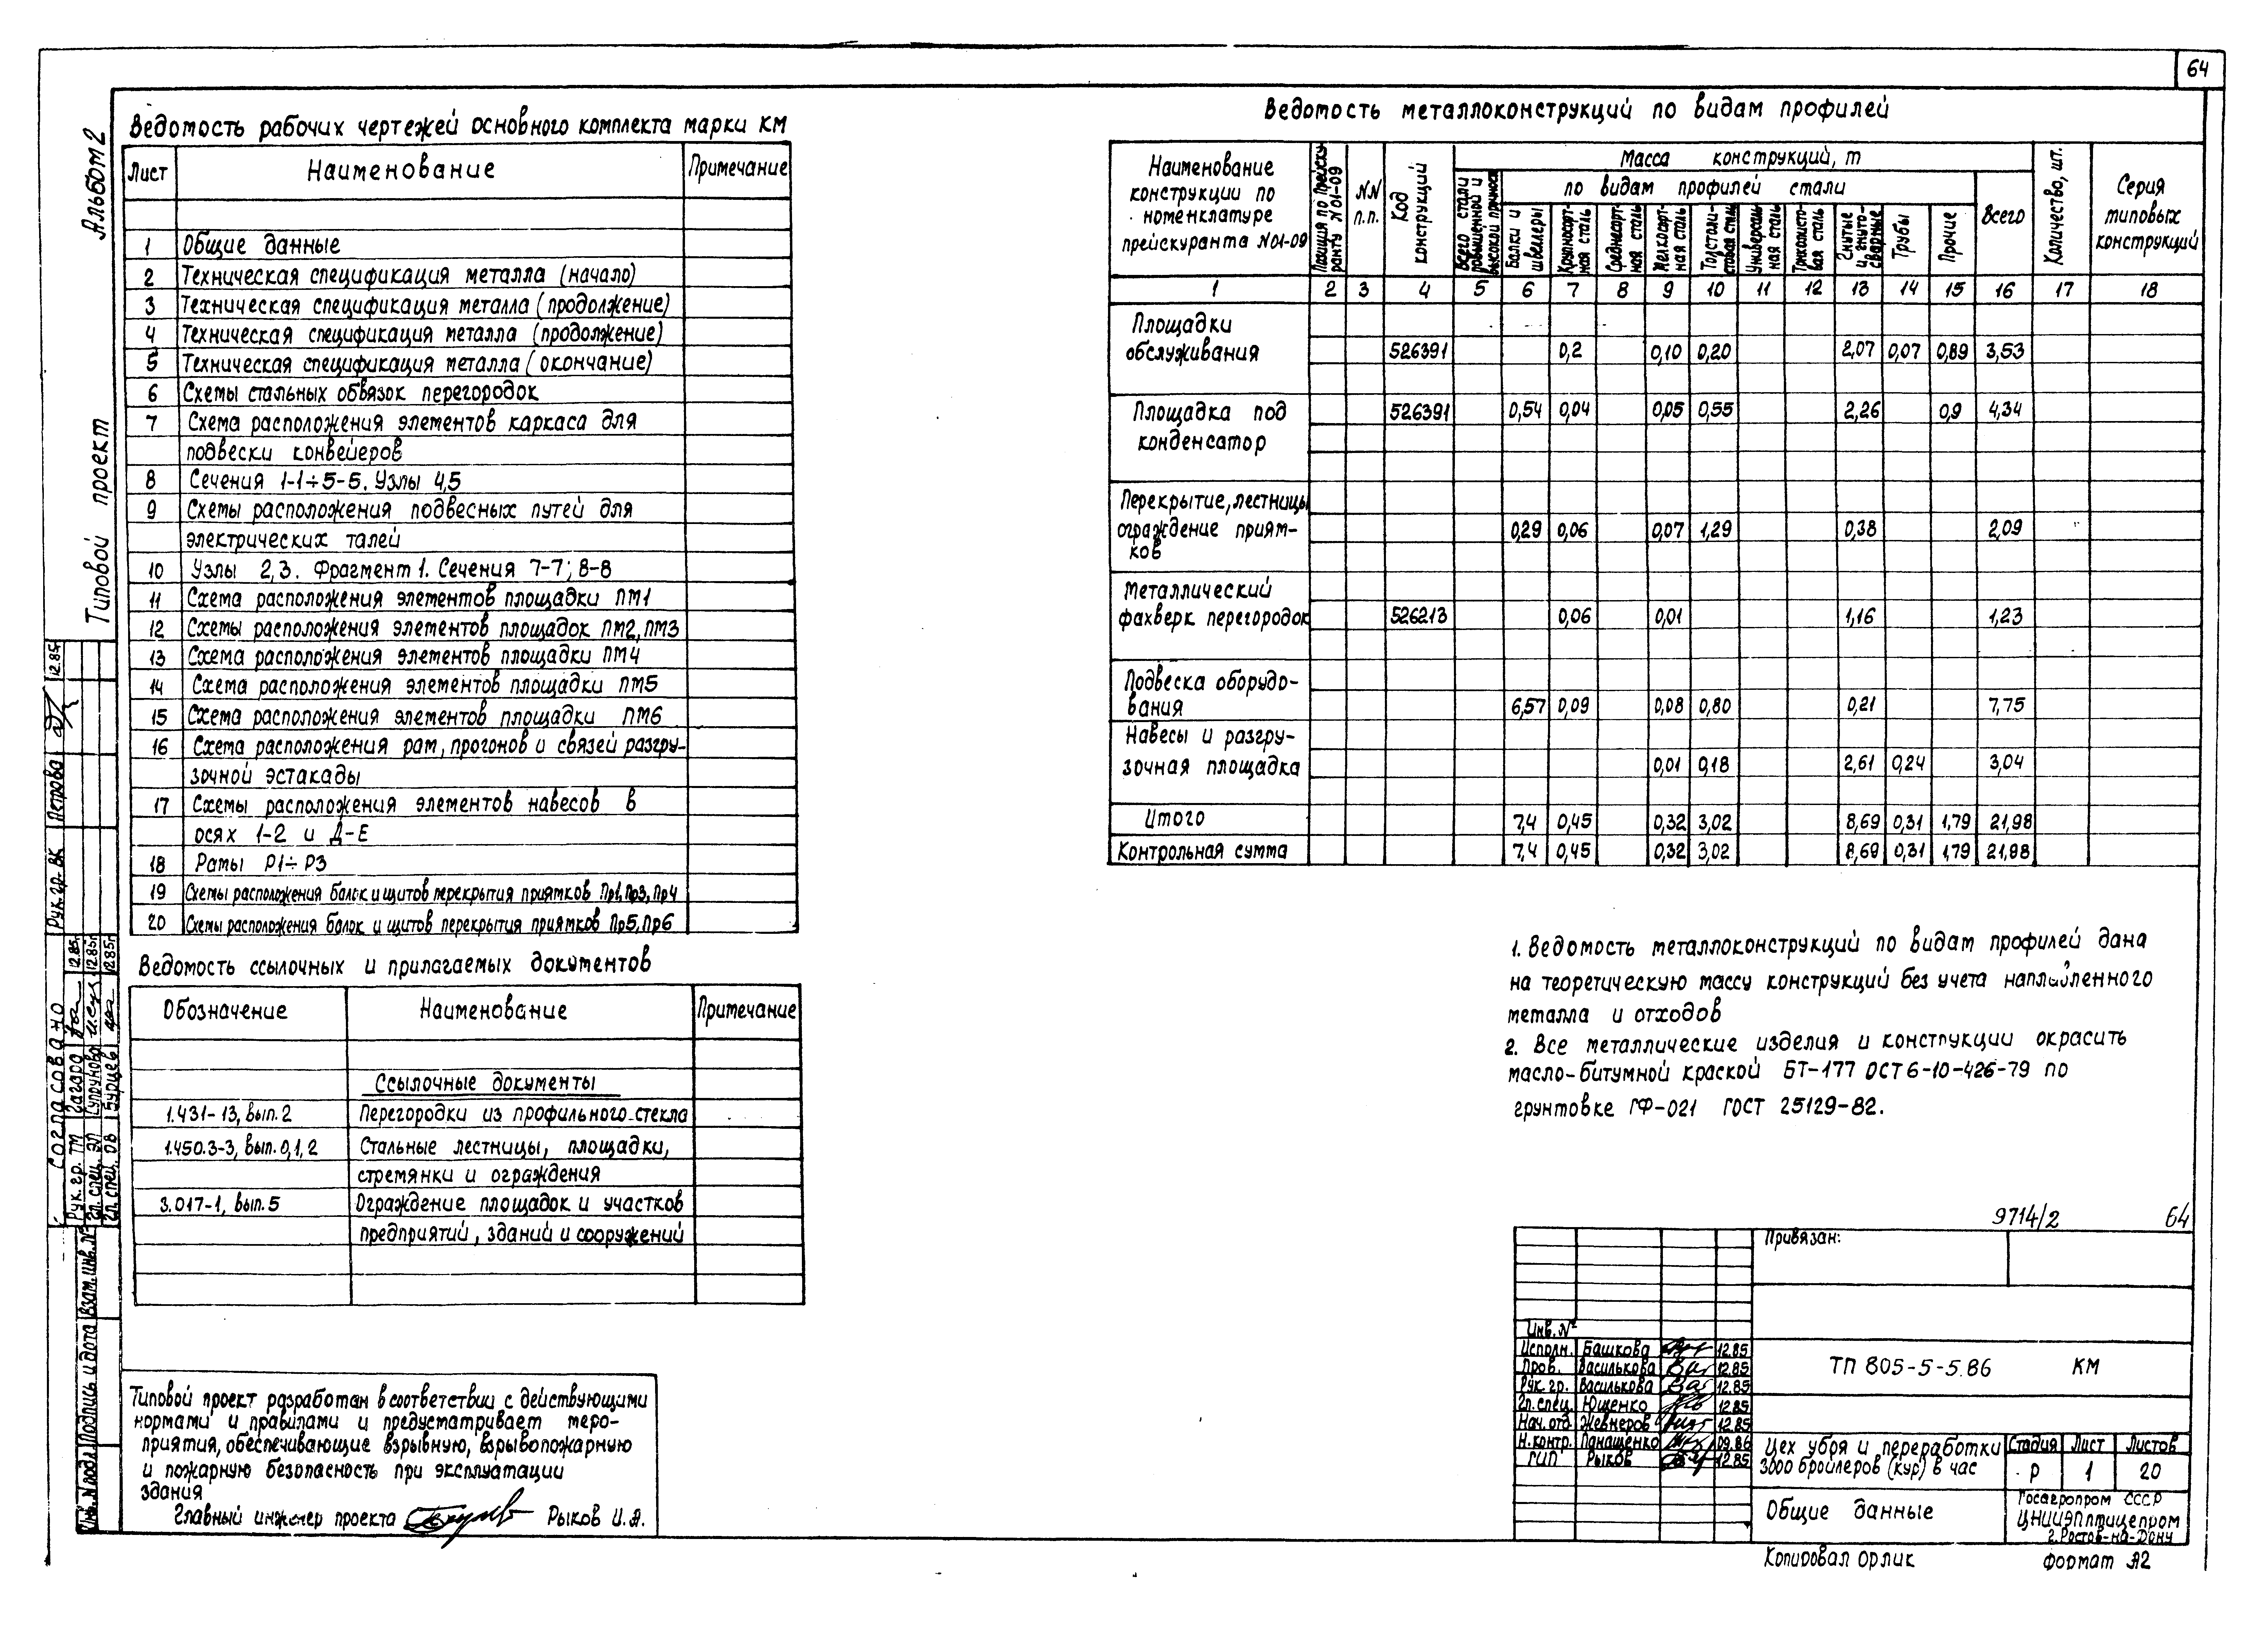 64
Альбом 2
Типовой проект
Ведомость рабочих чертежей основного комплекта марки КМ
Лист Наименование Примечание
1 Общие данные
2 Техническая спецификация металла (начало)
3 Техническая спецификация металла (продолжение)
4 Техническая спецификация металла (продолжение)
5 Техническая спецификация металла (окончание)
6 Схемы стальных обвязок перегородок
7 Схема расположения элементов каркаса для
подвески конвейеров
8 Сечения 1-1÷5-5. Узлы 4,5
9 Схемы расположения подвесных путей для
электрических талей
10 Узлы 2,3. Фрагмент 1. Сечения 7-7; 8-8
11 Схема расположения элементов площадки ПМ1
12 Схемы расположения элементов площадок ПМ2, ПМ3
13 Схема расположения элементов площадки ПМ4
14 Схема расположения элементов площадки ПМ5
15 Схема расположения элементов площадки ПМ6
16 Схема расположения рам, прогонов и связей разгру-
зочной эстакады
17 Схемы расположения элементов навесов в
осях 1-2 и Д-Е
18 Рамы Р1÷Р3
19 Схемы расположения балок и щитов перекрытия приямков Пр1, Пр3, Пр4
20 Схемы расположения балок и щитов перекрытия приямков Пр5, Пр6
Ведомость ссылочных и прилагаемых документов
Обозначение Наименование Примечание
Ссылочные документы
1.431-13, вып.2 Перегородки из профильного стекла
1.450.3-3, вып.0,1,2 Стальные лестницы, площадки,
стремянки и ограждения
3.017-1, вып.5 Ограждение площадок и участков
предприятий, зданий и сооружений
Типовой проект разработан в соответствии с действующими
нормами и правилами и предусматривает меро-
приятия, обеспечивающие взрывную, взрывопожарную
и пожарную безопасность при эксплуатации
здания
Главный инженер проекта Рыков И.А.
Ведомость металлоконструкций по видам профилей
Наименование конструкции по номенклатуре прейскуранта N01-09
Позиция по Прейскуранту N 01-09
N.N п.п.
Код конструкций
Масса конструкций, т
Всего стали повышенной и высокой прочности
по видам профилей стали
Балки и швеллеры
Крупносортная сталь
Среднесортная сталь
Мелкосортная сталь
Толстолистовая сталь
Универсальная сталь
Тонколистовая сталь
Гнутые и гнутосварные
Трубы
Прочие
Всего
Количество, шт.
Серия типовых конструкций
1 2 3 4 5 6 7 8 9 10 11 12 13 14 15 16 17 18
Площадки
обслуживания 526391 0,2 0,10 0,20 2,07 0,07 0,89 3,53
Площадка под 526391 0,54 0,04 0,05 0,55 2,26 0,9 4,34
конденсатор
Перекрытие, лестницы
ограждение приям- 0,29 0,06 0,07 1,29 0,38 2,09
ков
Металлический
фахверк перегородок 526213 0,06 0,01 1,16 1,23
Подвеска оборудо-
вания 6,57 0,09 0,08 0,80 0,21 7,75
Навесы и разгру-
зочная площадка 0,01 0,18 2,61 0,24 3,04
Итого 7,4 0,45 0,32 3,02 8,69 0,31 1,79 21,98
Контрольная сумма 7,4 0,45 0,32 3,02 8,69 0,31 1,79 21,98
1. Ведомость металлоконструкций по видам профилей дана
на теоретическую массу конструкций без учета наплавленного
металла и отходов
2. Все металлические изделия и конструкции окрасить
масло-битумной краской БТ-177 ОСТ 6-10-426-79 по
грунтовке ГФ-021 ГОСТ 25129-82.
9714/2 64
Привязан:
Инв. №
Исполн. Башкова 12.85
Пров. Василькова 12.85
Рук. гр. Василькова 12.85
Гл. спец. Ющенко 12.85
Нач. отд. Жевнеров 12.85
Н. контр. Панащенко 09.86
ГИП Рыков 12.85
ТП 805-5-5.86 КМ
Цех убоя и переработки
3000 бройлеров (кур) в час
Стадия Лист Листов
Р 1 20
Общие данные
Госагропром СССР
ЦНИИЭПптицепром
г. Ростов-на-Дону
Копировал Орлик
Формат А2
Согласовано
Рук. гр. ВК Петрова 12.85
Рук. гр. ТМ Гагара 12.85г
Гл. спец. ЭЛ Супрунова 12.85г
Гл. спец. ОВ Бурцев 12.85г
Инв. N подл. Подпись и дата Взам. инв. №